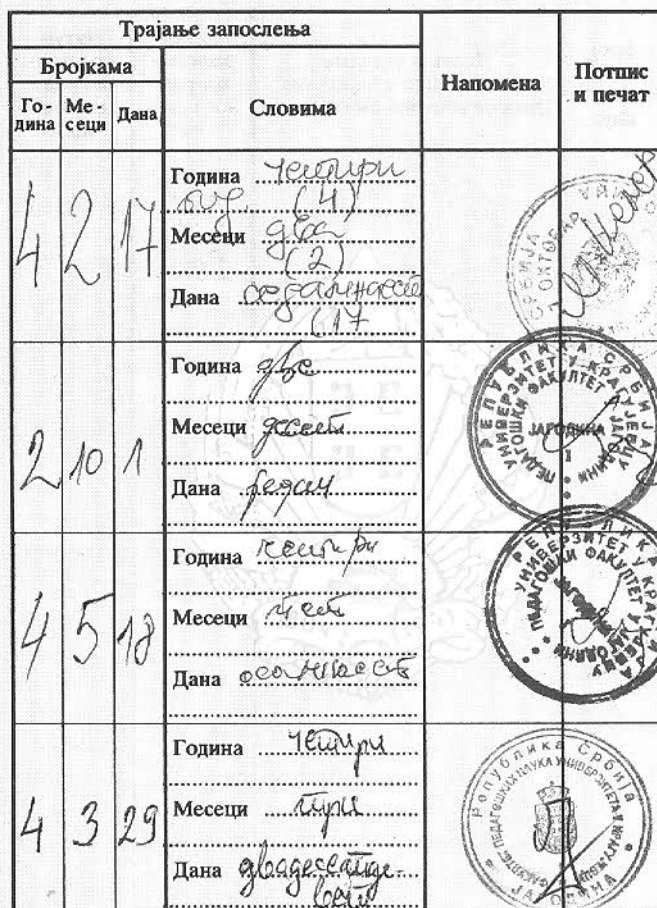 Трајање запослења
Бројкама
Словима
Напомена
Потпис
и печат
Го-
дина
Ме-
сеци
Дана
4 2 17
Година четири
год. (4)
Месеци два
(2)
Дана седамнаест
(17
СРБИЈА
ОКТОБАР
2 10 1
Година две
Месеци десет
Дана један
РЕПУБЛИКА СРБИЈА
УНИВЕРЗИТЕТ У КРАГУЈЕВЦУ
ПЕДАГОШКИ ФАКУЛТЕТ У ЈАГОДИНИ
ЈАГОДИНА
I
4 5 18
Година четири
Месеци пет
Дана осамнаест
РЕПУБЛИКА
УНИВЕРЗИТЕТ У КРАГУЈЕВЦУ
ПЕДАГОШКИ ФАКУЛТЕТ У ЈАГОДИНИ
4 3 29
Година четири
Месеци три
Дана двадесетде-
вет
Република Србија
ФАКУЛТЕТ ПЕДАГОШКИХ НАУКА УНИВЕРЗИТЕТА У КРАГУЈЕВЦУ
ЈАГОДИНА